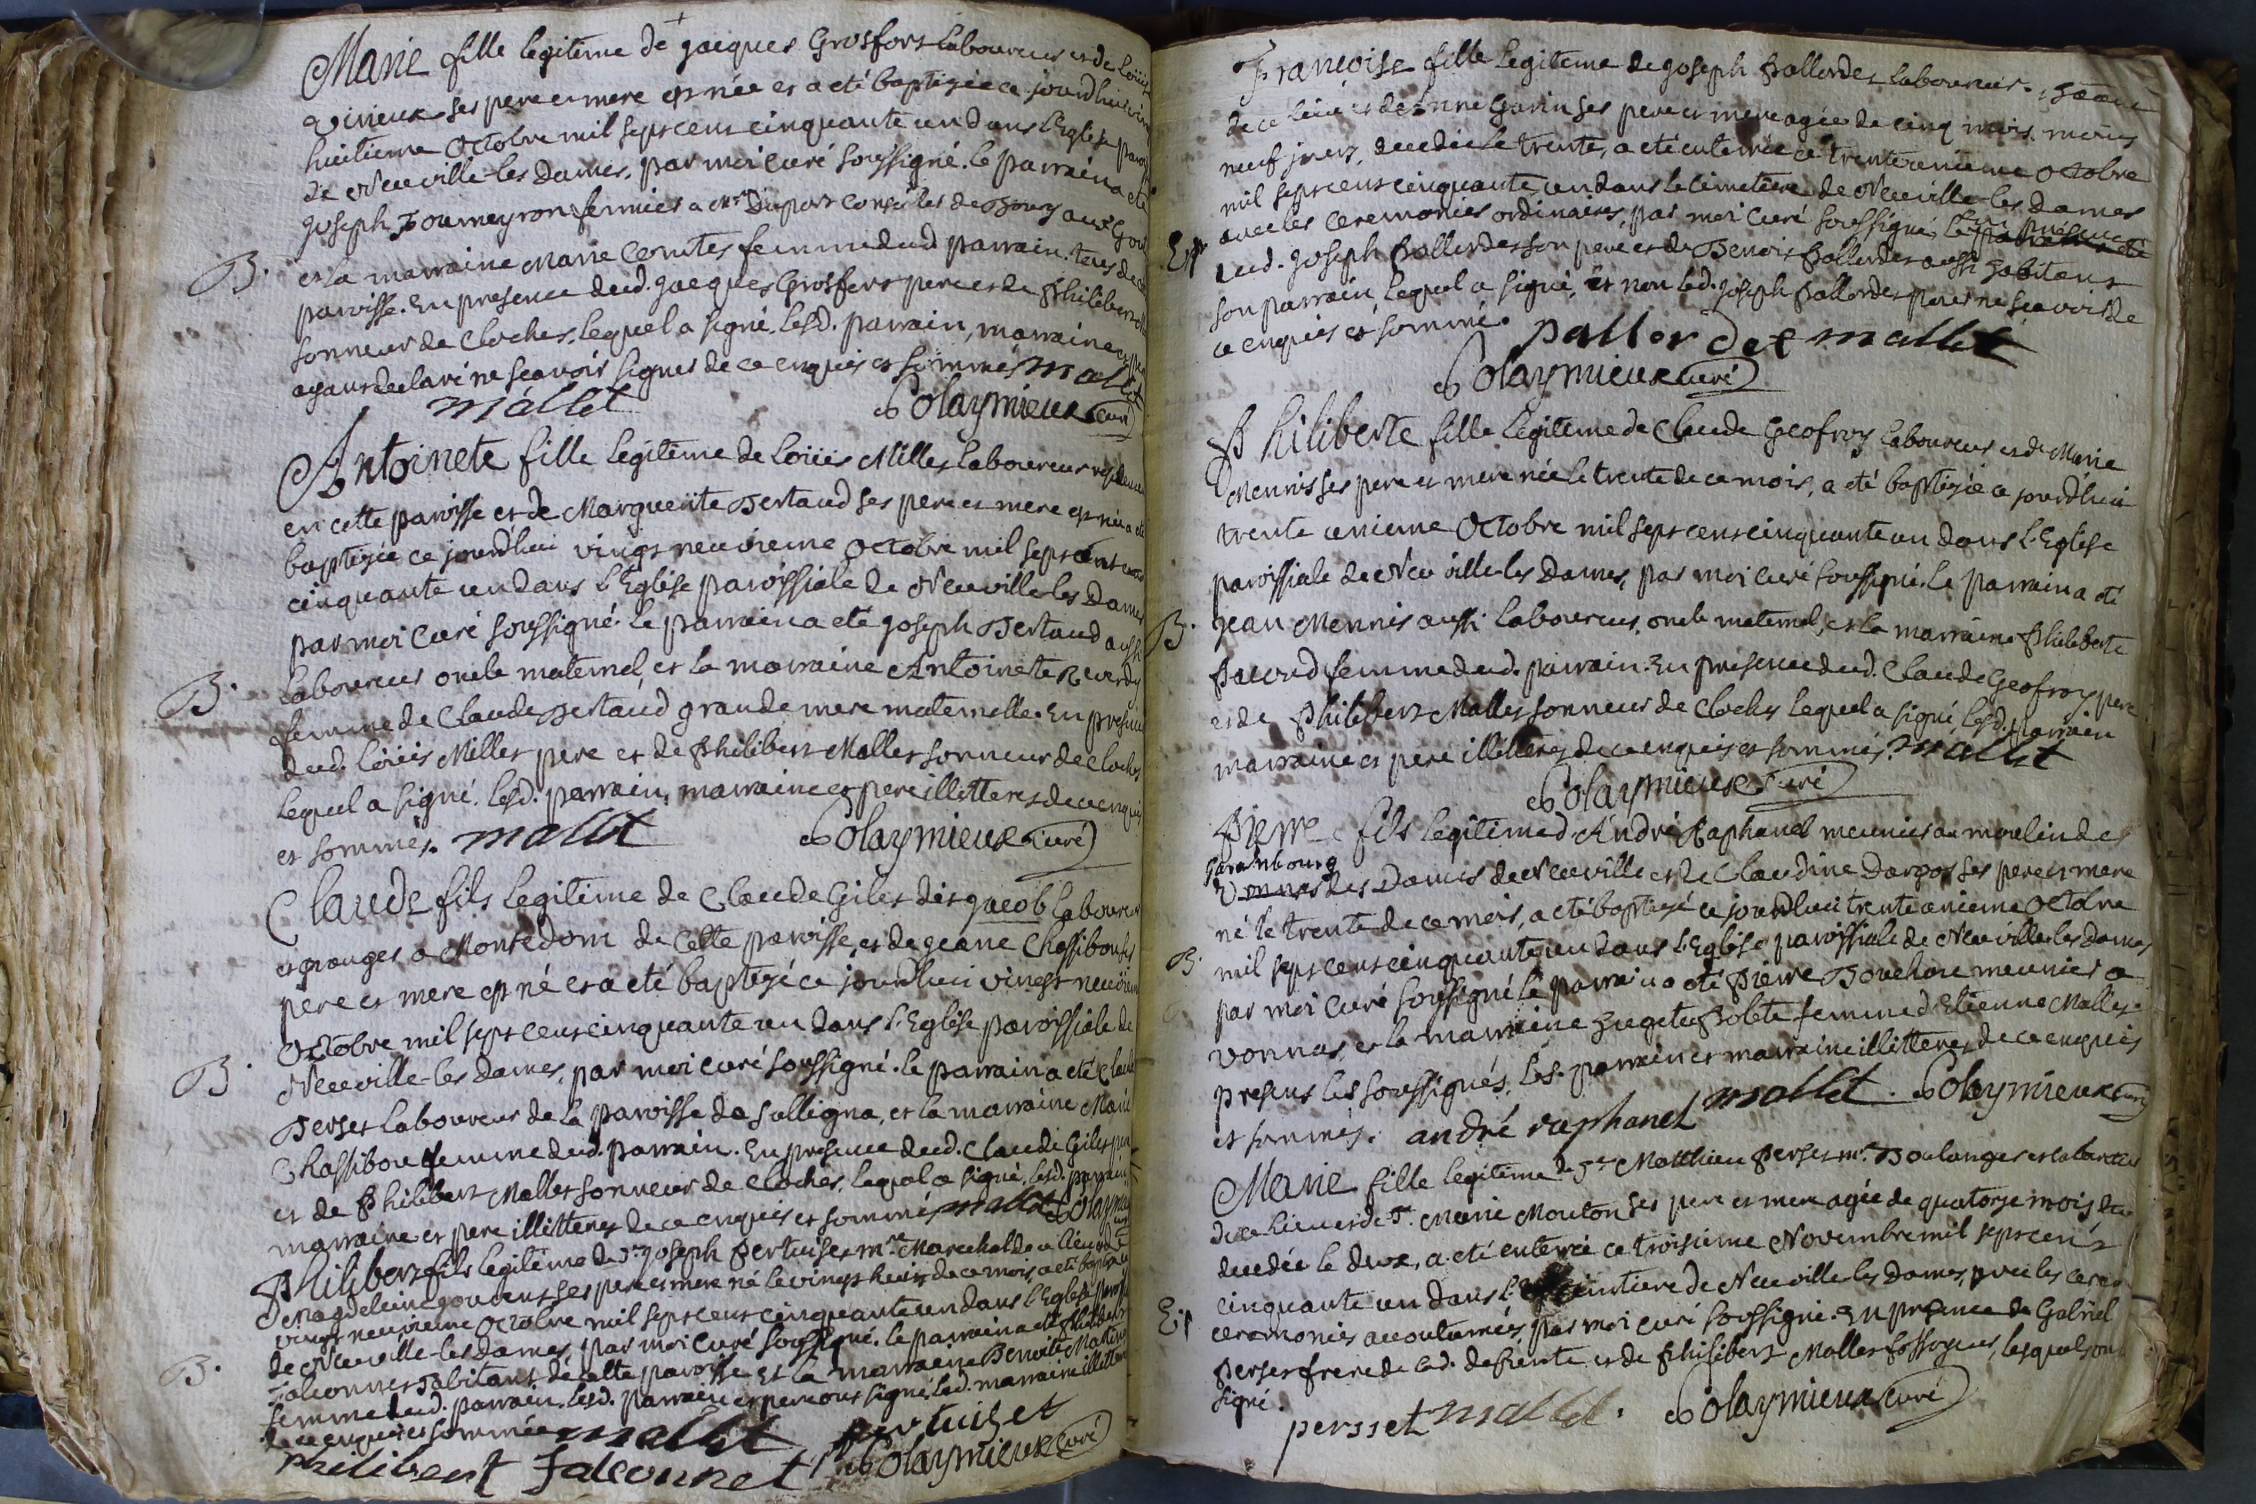 Marie fille legitême de jacques Grosfort laboureur et de Loüise
Virieux ses pere et mere est née et a eté baptizée ce jourdhui vint
huitieme Octobre mil sept cent cinquante un dans l'Eglise paroiss
de Neuville-les Dames, par moi curé soussigné. le parrain a eté
joseph Fourneyron fermier a Mr Duport
et la marraine Marie Comtet femme dud parrain.
B.
paroisse. En presence dud. jacques Grosfort pere et de Philibert
sonneur de Cloches, lequel a signé. lesd. parrain, marraine et pere
ayant declaré ne sçavoir signer de ce enquis et sommés mallet
mallet Colaymieux Curé
Antoinete fille legitême de Loüis Millet laboureur
en cette paroisse et de Marguerite Bertaud ses pere et mere est née a eté
baptizée ce jourdhui vingt neuvieme Octobre mil sept cent
cinquante un dans l'Eglise paroissiale de Neuville-les Dames
par moi Curé soussigné. le parrain a eté joseph Bertaud aussi
B.
laboureur oncle maternel, et la marraine Antoinete Reverdy
femme de Claude Bertaud grande mere maternelle. En presence
dud. Loüis Millet pere et de Philibert Mallet sonneur de Cloches
lequel a signé. lesd. parrain, marraine et pere illitterés de ce enquis
et sommés. mallet Colaymieux Curé
Claude fils legitime de Claude Gilet dit jacob laboureur
et granger a Montedom de cette paroisse, et de jeane Chassibout ses
pere et mere est né et a eté baptizé ce jourdhui vingt neuvieme
Octobre mil sept cent cinquante un dans l'Eglise paroissiale de
B.
Neuville-les Dames, par moi curé soussigné. le parrain a eté Claude
Perset laboureur de la paroisse de Sulligna, et la marraine Marie
Chassibout femme dud. parrain. En presence dud. Claude Gilet pere
et de Philibert Mallet sonneur de Cloches, lequel a signé. lesd. parrain
marraine et pere illitterés de ce enquis et sommés mallet Colaymieux
Philibert fils legitême de Sr joseph Pertuiset me Marechal de ce lieu et de
Magdeleine goudent ses pere et mere né le vingt huit de ce mois, a eté baptizé
vingt neuvieme Octobre mil sept cent cinquante un dans l'Eglise paroiss
de Neuville-les-Dames, par moi curé soussigné. le parrain a eté Philibert
B.
Falconnet habitant de cette paroisse et la marraine Benoite Mattin
femme dud. parrain. lesd. parrain et pere ont signé, lad. marraine illitterée
de ce enquise et sommée mallet pertuiset
Philibert Falconnet Colaymieux Curé
Francoise fille legitime de joseph Pallordet laboureur
de ce lieu et de Anne Garin ses pere et mere agée de cinq mois moins
neuf jours, decedée le trente, a eté enterrée ce trente unieme Octobre
mil sept cent cinquante un dans le cimetiere de Neuville-les Dames
avec les ceremonies ordinaires, par moi curé soussigné. En presence
Ep
dud. joseph Pallordet son pere et de Benoit Pallordet aussi habitant
son parrain, lequel a signé, et non led. joseph Pallordet pour ne sçavoir de
ce enquis et sommé. pallordet mallet
Colaymieux Curé
Philiberte fille legitime de Claude Geofroy laboureur et de Marie
Mennis ses pere et mere née le trente de ce mois, a eté baptizée ce jourdhui
trente unieme Octobre mil sept cent cinquante un dans l'Eglise
paroissiale de Neuville-les Dames, par moi curé soussigné. le parrain a eté
B.
jean Mennis aussi laboureur, oncle maternel, et la marraine Philiberte
Pacoud femme dud. parrain. En presence dud. Claude Geofroy pere
et de Philibert Mallet sonneur de cloches lequel a signé, lesd. parrain
marraine et pere illitterés de ce enquis et sommés. mallet
Colaymieux Curé
Pierre fils legitime d'André Raphanel meunier au moulin de
garambourg
des Dames de Neuville et de Claudine Dargot ses pere et mere
né le trente de ce mois, a eté baptizé ce jourdhui trente unieme Octobre
B.
mil sept cent cinquante un dans l'Eglise paroissiale de Neuville les Dames
par moi curé soussigné. le parrain a eté Pierre Bouchon meunier a
vonnas, et la marraine Hugete Bolete femme d'Etienne Mallet.
presens les soussignés, les parrain et marraine illitterés de ce enquis
et sommés. andré raphanel mallet. Colaymieux Curé
Marie fille legitime de Sr Matthieu Perset me. Boulanger et cabartier
de ce lieu et de D. Marie Mouton ses pere et mere agée de quatorze mois
decedée le deux, a eté enterrée ce troisieme Novembre mil sept cent
cinquante un dans le cimetiere de Neuville-les Dames, avec les
Ep
ceremonies accoutumées, par moi curé soussigné. En presence de Gabriel
Perset frere de lad. defunte et de Philibert Mallet fossoyeur, lesquels ont
signé.
persset mallet. Colaymieux Curé